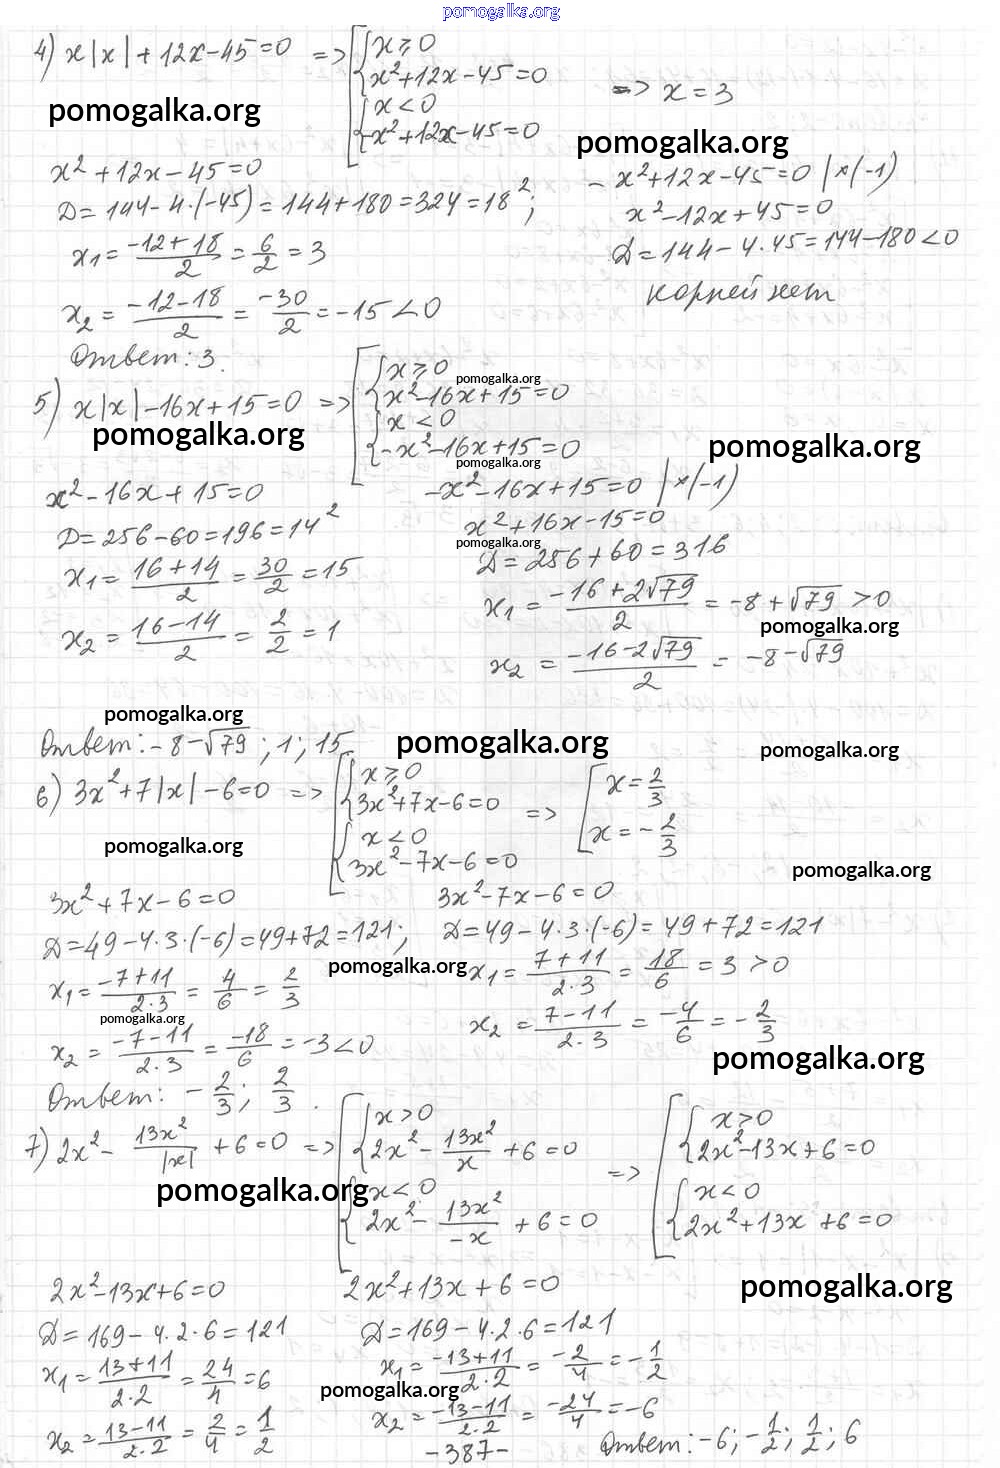 pomogalka.org
4) x|x| + 12x - 45 = 0 => [ { x ≥ 0
x² + 12x - 45 = 0
{ x < 0
-x² + 12x - 45 = 0
=> x = 3
pomogalka.org
pomogalka.org
x² + 12x - 45 = 0
Д = 144 - 4·(-45) = 144 + 180 = 324 = 18²;
x₁ = (-12+18)/2 = 6/2 = 3
x₂ = (-12-18)/2 = -30/2 = -15 < 0
-x² + 12x - 45 = 0 |×(-1)
x² - 12x + 45 = 0
Д = 144 - 4·45 = 144 - 180 < 0
корней нет
Ответ: 3.
5) x|x| - 16x + 15 = 0 => [ { x ≥ 0
x² - 16x + 15 = 0
{ x < 0
-x² - 16x + 15 = 0
pomogalka.org
pomogalka.org
pomogalka.org
pomogalka.org
x² - 16x + 15 = 0
Д = 256 - 60 = 196 = 14²
x₁ = (16+14)/2 = 30/2 = 15
x₂ = (16-14)/2 = 2/2 = 1
-x² - 16x + 15 = 0 |×(-1)
x² + 16x - 15 = 0
pomogalka.org
Д = 256 + 60 = 316
x₁ = (-16 + 2√79)/2 = -8 + √79 > 0
pomogalka.org
x₂ = (-16 - 2√79)/2 = -8 - √79
pomogalka.org
Ответ: -8 - √79; 1; 15
pomogalka.org
pomogalka.org
6) 3x² + 7|x| - 6 = 0 => [ { x ≥ 0
3x² + 7x - 6 = 0
{ x < 0
3x² - 7x - 6 = 0
=> [ x = 2/3
x = -2/3
pomogalka.org
pomogalka.org
3x² + 7x - 6 = 0
Д = 49 - 4·3·(-6) = 49 + 72 = 121;
x₁ = (-7+11)/(2·3) = 4/6 = 2/3
pomogalka.org
x₂ = (-7-11)/(2·3) = -18/6 = -3 < 0
3x² - 7x - 6 = 0
Д = 49 - 4·3·(-6) = 49 + 72 = 121
pomogalka.org
x₁ = (7+11)/(2·3) = 18/6 = 3 > 0
x₂ = (7-11)/(2·3) = -4/6 = -2/3
pomogalka.org
Ответ: -2/3; 2/3.
7) 2x² - 13x²/|x| + 6 = 0 => [ { x > 0
2x² - 13x²/x + 6 = 0
{ x < 0
2x² - 13x²/-x + 6 = 0
=> [ { x > 0
2x² - 13x + 6 = 0
{ x < 0
2x² + 13x + 6 = 0
pomogalka.org
pomogalka.org
2x² - 13x + 6 = 0
Д = 169 - 4·2·6 = 121
x₁ = (13+11)/(2·2) = 24/4 = 6
x₂ = (13-11)/(2·2) = 2/4 = 1/2
2x² + 13x + 6 = 0
Д = 169 - 4·2·6 = 121
x₁ = (-13+11)/(2·2) = -2/4 = -1/2
pomogalka.org
x₂ = (-13-11)/(2·2) = -24/4 = -6
-387-
Ответ: -6; -1/2; 1/2; 6